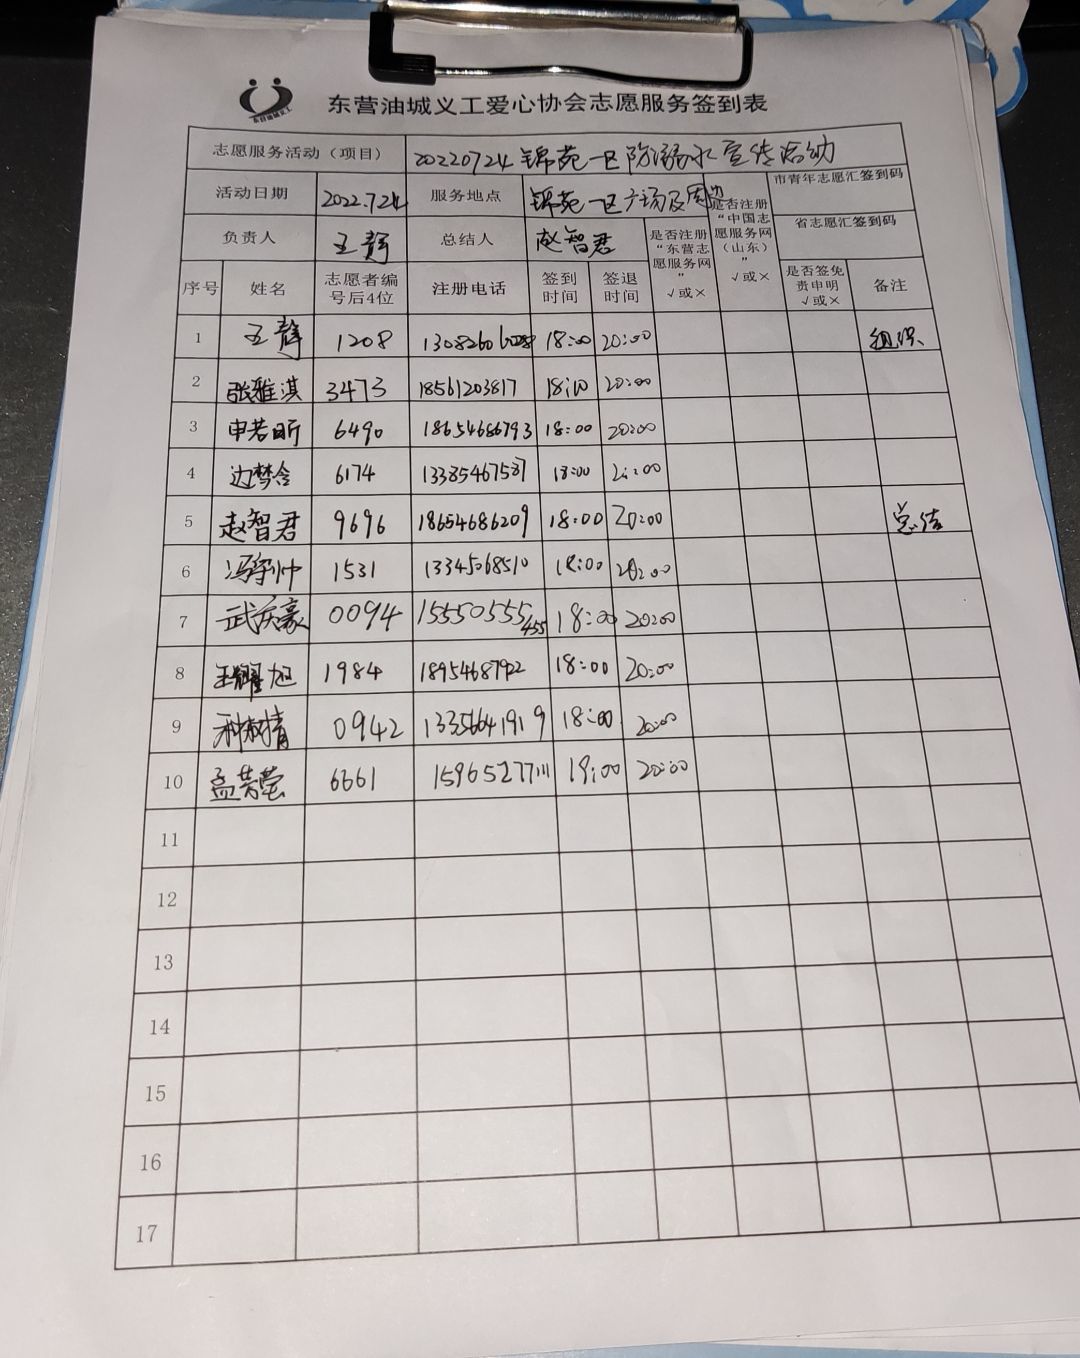 东营油城义工
东营油城义工爱心协会志愿服务签到表
志愿服务活动（项目） 20220724锦苑一区防溺水宣传活动
活动日期 2022.7.24 服务地点 锦苑一区广场及周边 是否注册“东营志愿服务网” √或× 是否注册“中国志愿服务网（山东）” √或× 市青年志愿汇签到码
负责人 王静 总结人 赵智君 省志愿汇签到码
序号 姓名 志愿者编号后4位 注册电话 签到时间 签退时间 是否签免责申明 √或× 备注
1 王静 1208 18:00 20:00 组织
2 张雅淇 3473 18561203817 18:10 20:00
3 申若昕 6490 18654686793 18:00 20:00
4 边梦含 6174 13385467587 18:00 20:00
5 赵智君 9696 18654686209 18:00 20:00 总结
6 冯宇帅 1531 13345068510 18:00 20:00
7 武庆豪 0094 15550555455 18:00 20:00
8 王耀旭 1984 18954687922 18:00 20:00
9 0942 13356641919 18:00 20:00
10 孟芳莹 6661 15965277111 19:00 20:00
11
12
13
14
15
16
17